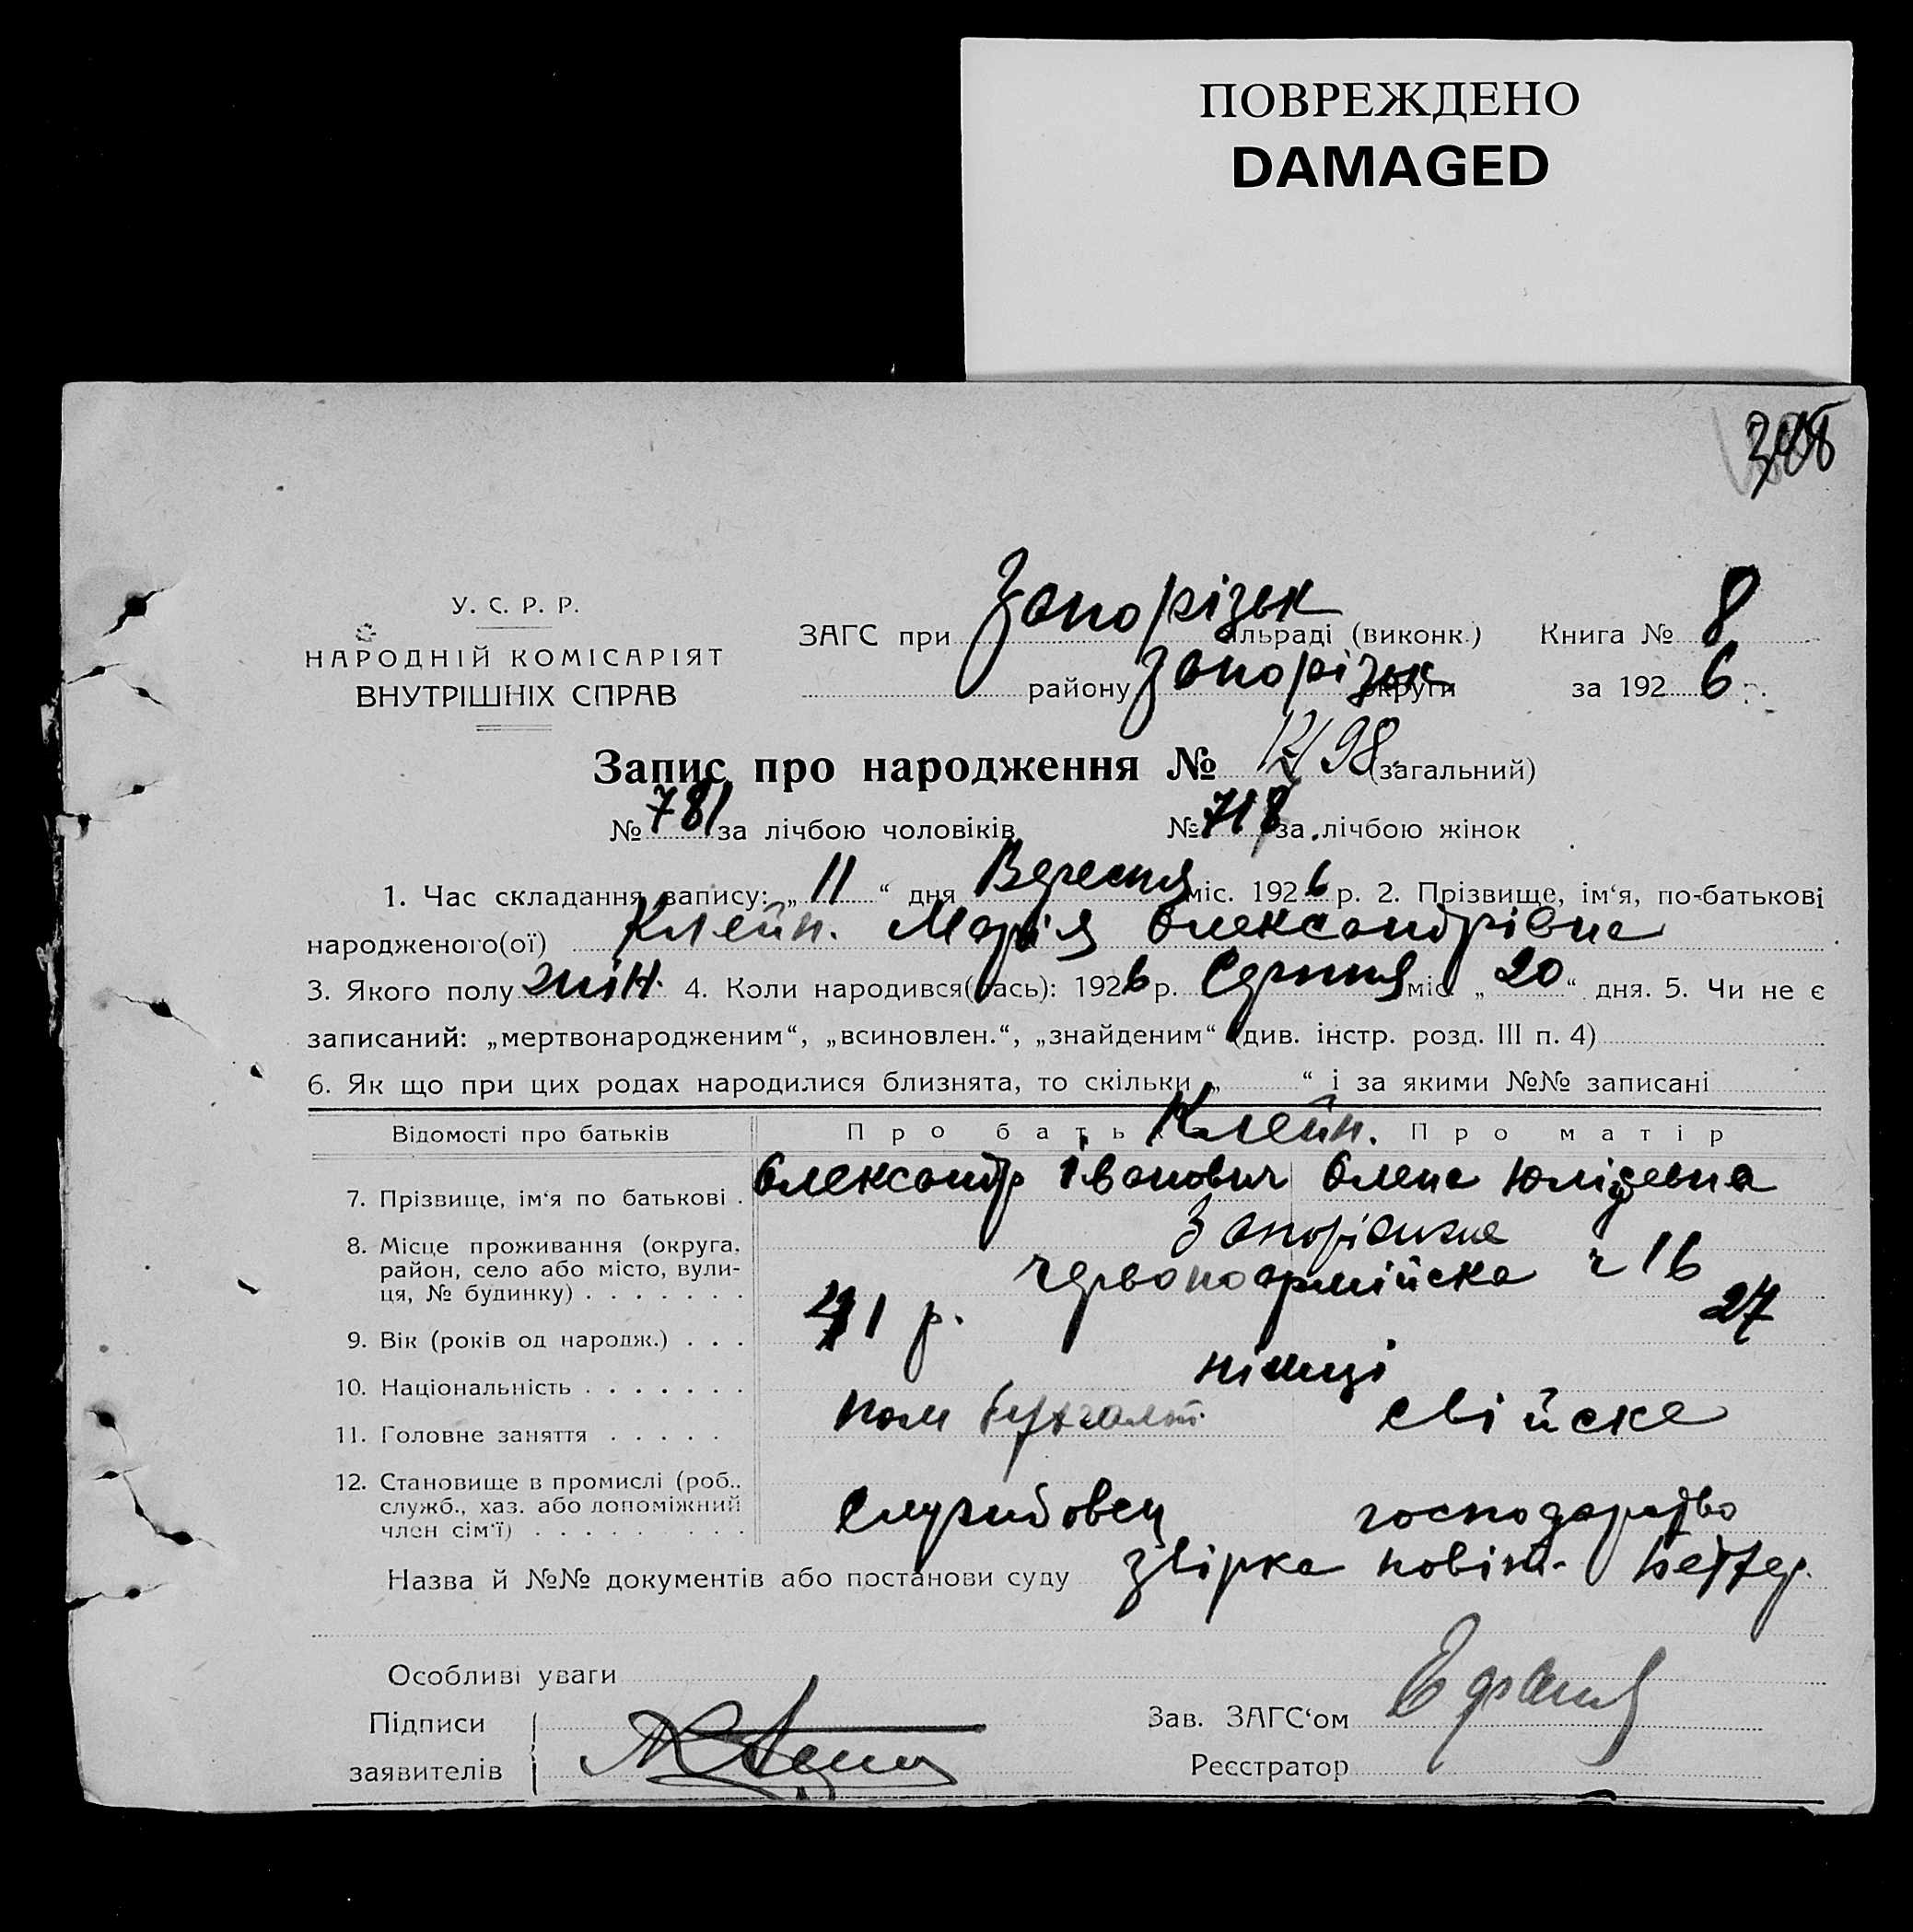 ПОВРЕЖДЕНО
DAMAGED
У. С. Р. Р.
НАРОДНІЙ КОМІСАРІЯТ
ВНУТРІШНІХ СПРАВ
ЗАГС при Запорізьк льраді (виконк.) Книга № 8
району Запорізьк округи за 1926 р.
Запис про народження № (загальний)
№ 781 за лічбою чоловіків № 718 за лічбою жінок
1. Час складання запису: „11“ дня Вересня міс. 1926 р. 2. Прізвище, ім‘я, по-батькові
народженого(ої) Клейн. Марія Олександрівна
3. Якого полу жін. 4. Коли народився(лась): 1926 р. Серпня міс. „20“ дня. 5. Чи не є
записаний: „мертвонародженим“, „всиновлен.“, „знайденим“ (див. інстр. розд. III п. 4)
6. Як що при цих родах народилися близнята, то скільки „ “ і за якими №№ записані
Відомості про батьків Про батька Клейн. Про матір
7. Прізвище, ім‘я по батькові . Олександр Іванович Олена
8. Місце проживання (округа, район, село або місто, вулиця, № будинку) . . . . . . .
Запоріжжя
червоноармійска ч 16
9. Вік (років од народж.) . . . 41 р. 27
10. Національність . . . . . . . німці
11. Головне заняття . . . . . пом бухгалт. свійске
12. Становище в промислі (роб., служб., хаз. або допоміжний член сім‘ї) . . . . . . . . .
Службовец господарство
Назва й №№ документів або постанови суду звірка повіт.
Особливі уваги
Підписи
заявителів
Зав. ЗАГС‘ом
Реєстратор